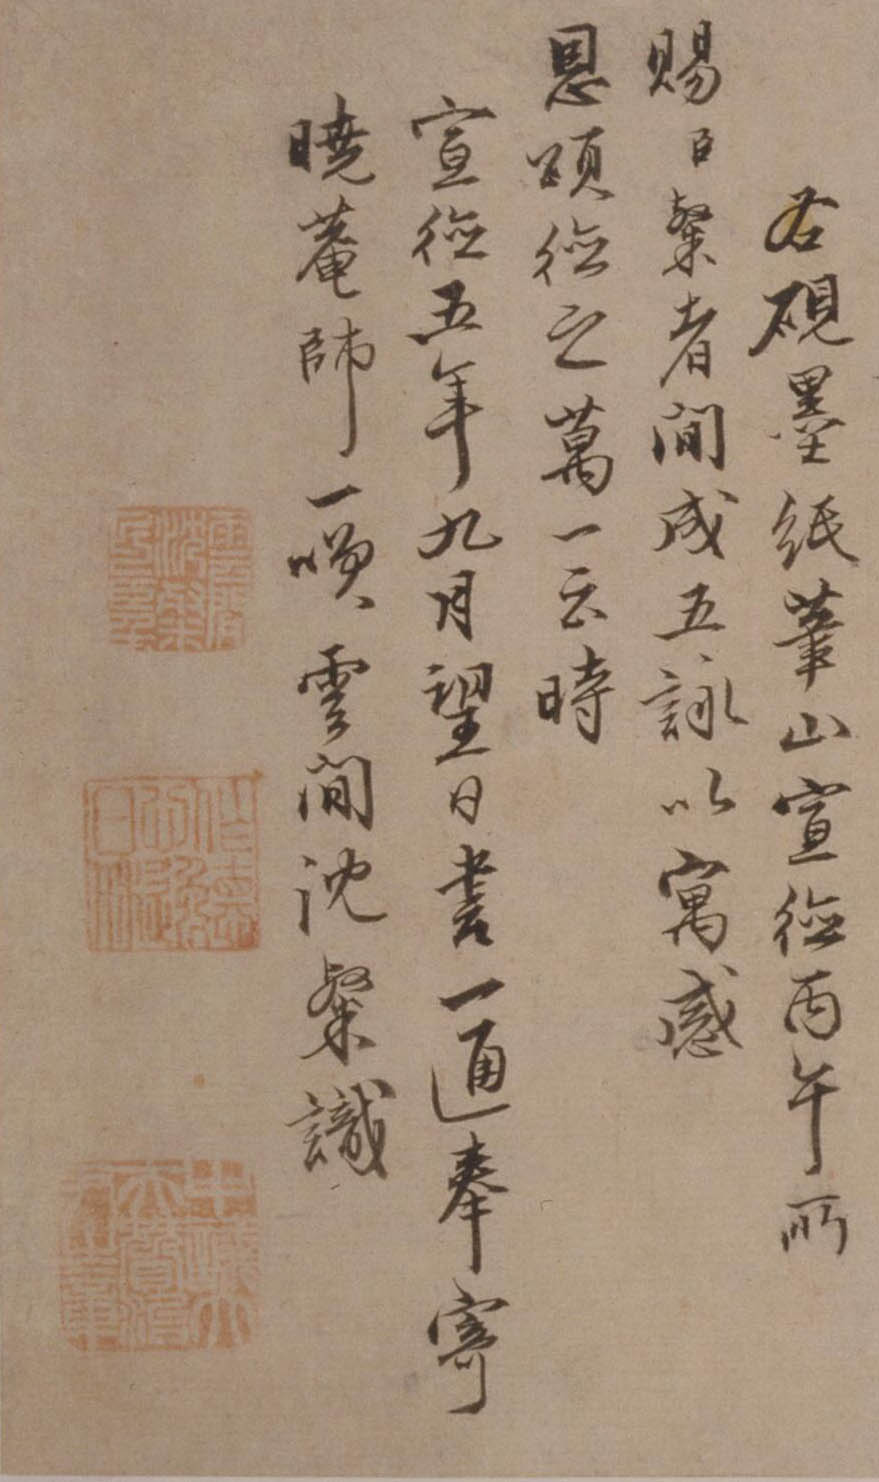 右硯墨紙筆山宣德丙午所
賜臣粲者間成五詠以寓感
恩頌德之萬一云時
宣德五年九月望日書一通奉寄
曉菴師一咲雲間沈粲識